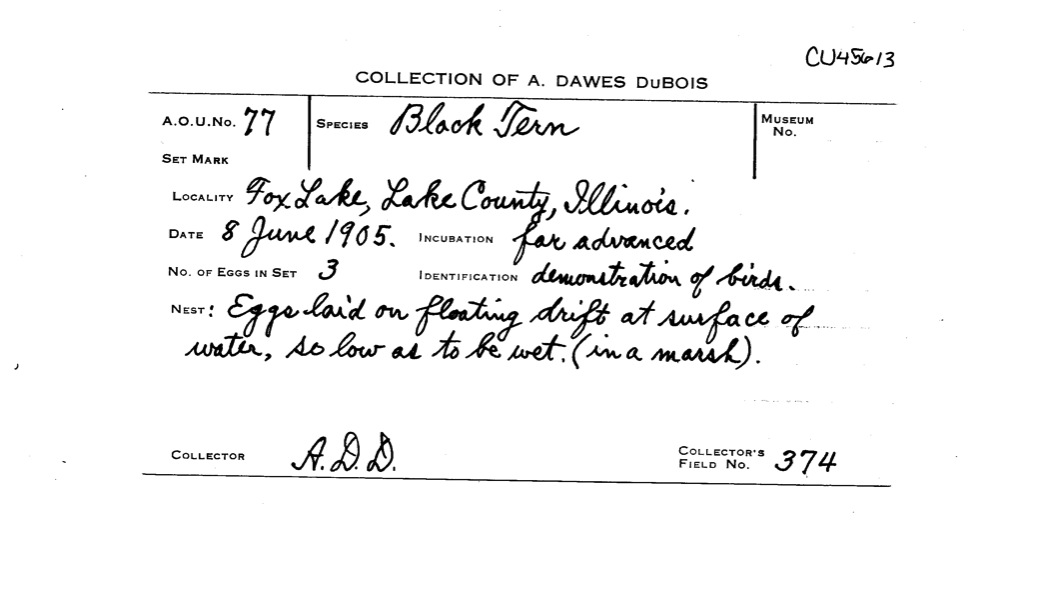 CU45613
COLLECTION OF A. DAWES DuBOIS
A.O.U.No. 77 SPECIES Black Tern MUSEUM No.
SET MARK
LOCALITY Fox Lake, Lake County, Illinois.
DATE 8 June 1905. INCUBATION far advanced
NO. OF EGGS IN SET 3 IDENTIFICATION demonstration of birds.
NEST: Eggs laid on floating drift at surface of
water, so low as to be wet. (in a marsh).
COLLECTOR A.D.D. COLLECTOR'S FIELD NO. 374